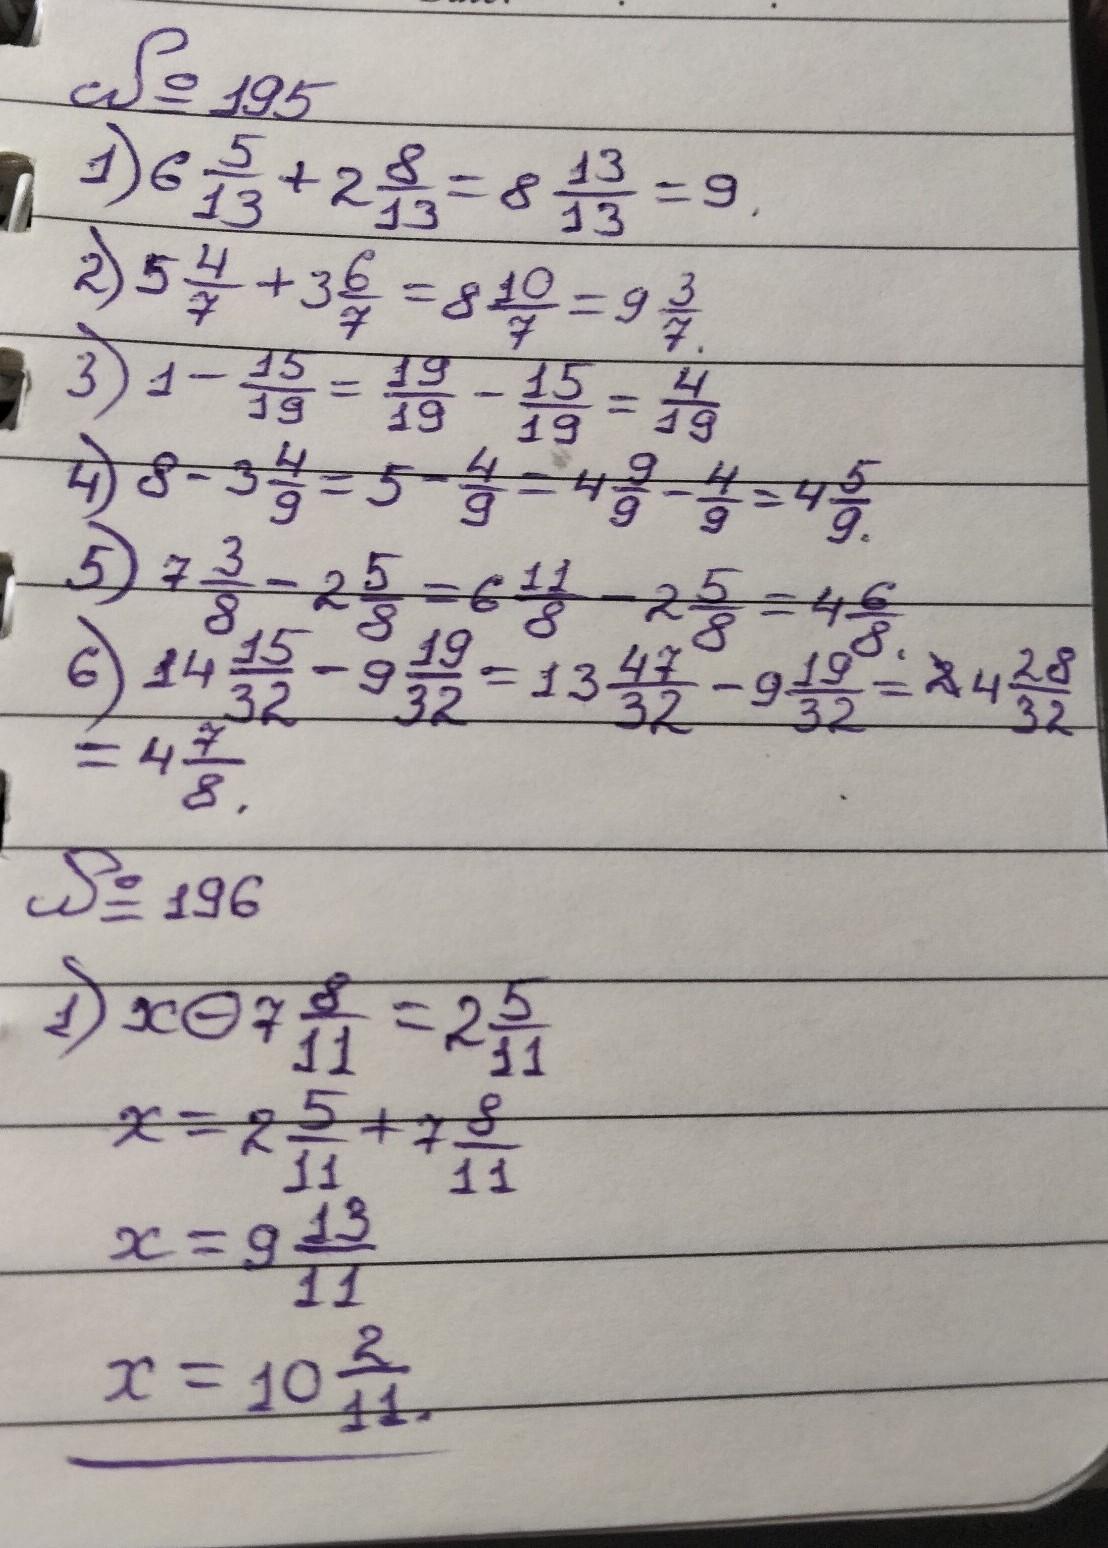 № 195
1) 6 5/13 + 2 8/13 = 8 13/13 = 9.
2) 5 4/7 + 3 6/7 = 8 10/7 = 9 3/7.
3) 1 - 15/19 = 19/19 - 15/19 = 4/19
4) 8 - 3 4/9 = 5 - 4/9 = 4 9/9 - 4/9 = 4 5/9.
5) 7 3/8 - 2 5/8 = 6 11/8 - 2 5/8 = 4 6/8.
6) 14 15/32 - 9 19/32 = 13 47/32 - 9 19/32 = 4 28/32
= 4 7/8.
№ 196
1) x ⊖ 7 8/11 = 2 5/11
x = 2 5/11 + 7 8/11
x = 9 13/11
x = 10 2/11.